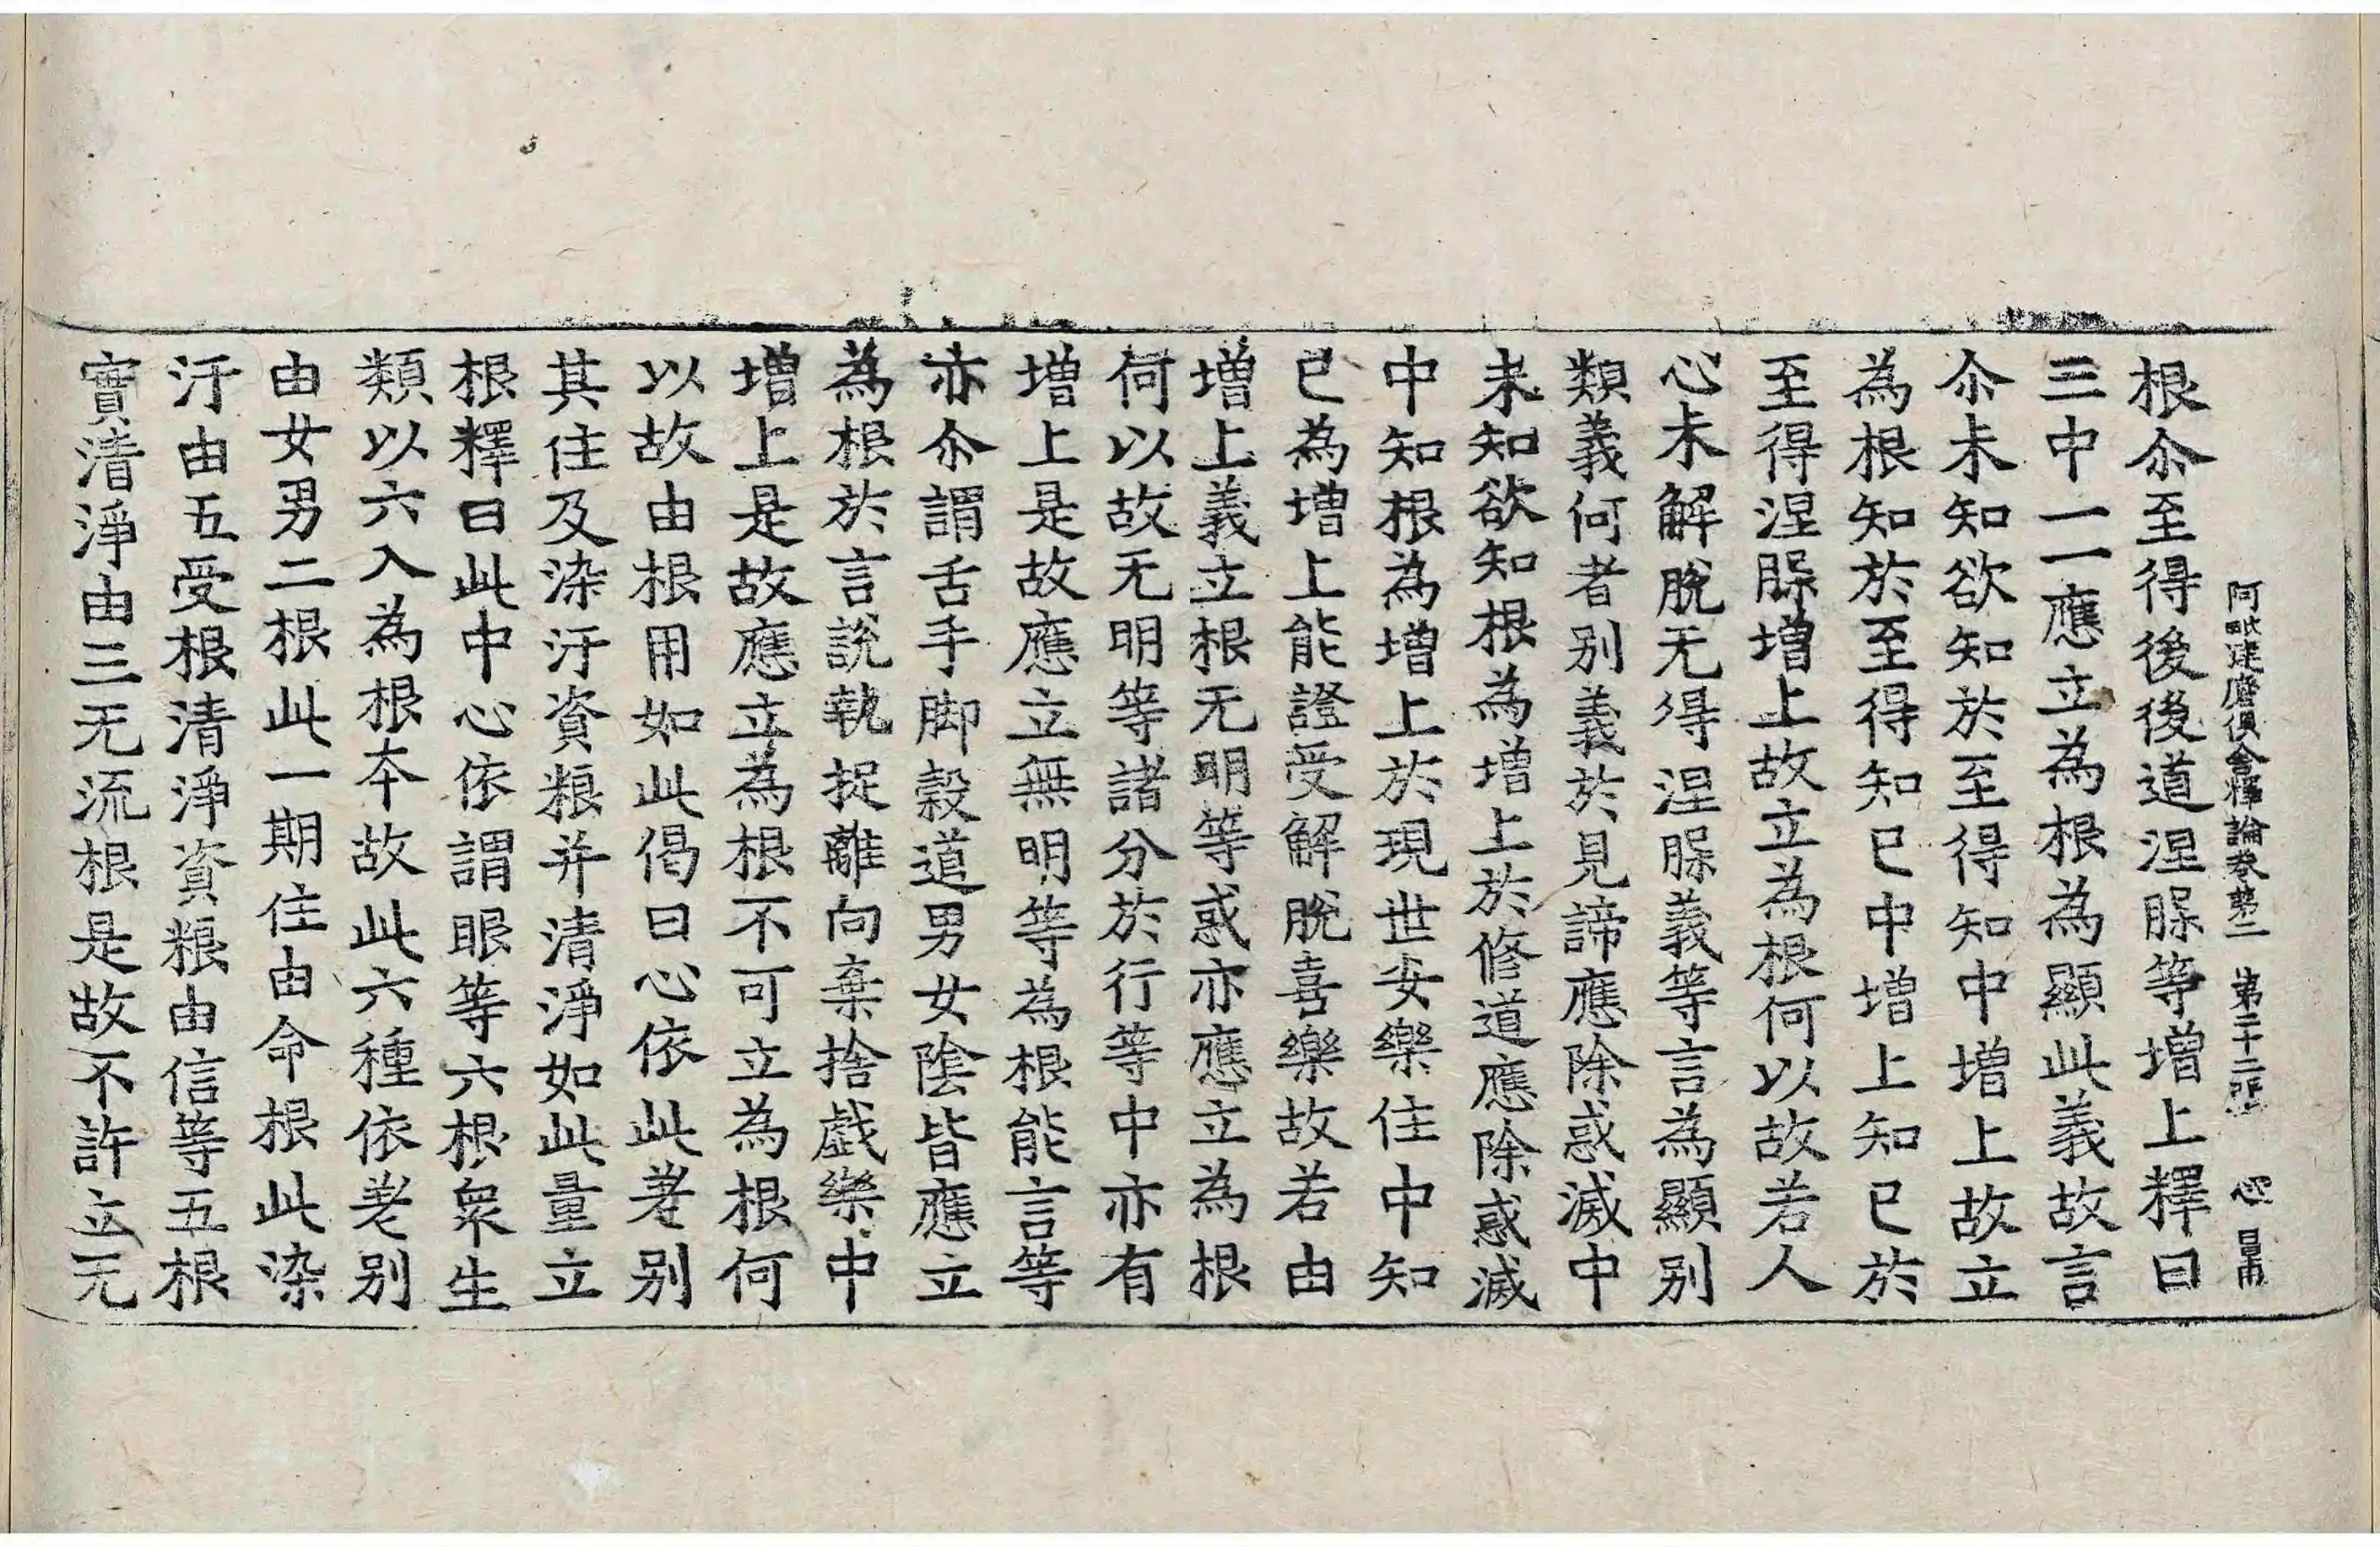 阿毗達磨俱舍釋論卷苐二 第二十二張 心 
根尒至得後後道涅槃等增上釋曰
三中一一應立為根為顯此義故言
尒未知欲知於至得知中增上故立
為根知於至得知已中增上知已於
至得涅槃增上故立為根何以故若人
心未解脫无得涅槃義等言為顯別
類義何者別義於見諦應除惑滅中
未知欲知根為增上於修道應除惑滅
中知根為增上於現世安樂住中知
已為增上能證受解脫喜樂故若由
增上義立根无明等惑亦應立為根
何以故无明等諸分於行等中亦有
增上是故應立無明等為根能言等
亦尒謂舌手脚穀道男女陰皆應立
為根於言說執捉離向棄捨戲樂中
增上是故應立為根不可立為根何
以故由根用如此偈曰心依此差別
其住及染汙資粮并清淨如此量立
根釋曰此中心依謂眼等六根衆生
類以六入為根本故此六種依差別
由女男二根此一期住由命根此染
汙由五受根清淨資粮由信等五根
實清淨由三无流根是故不許立无